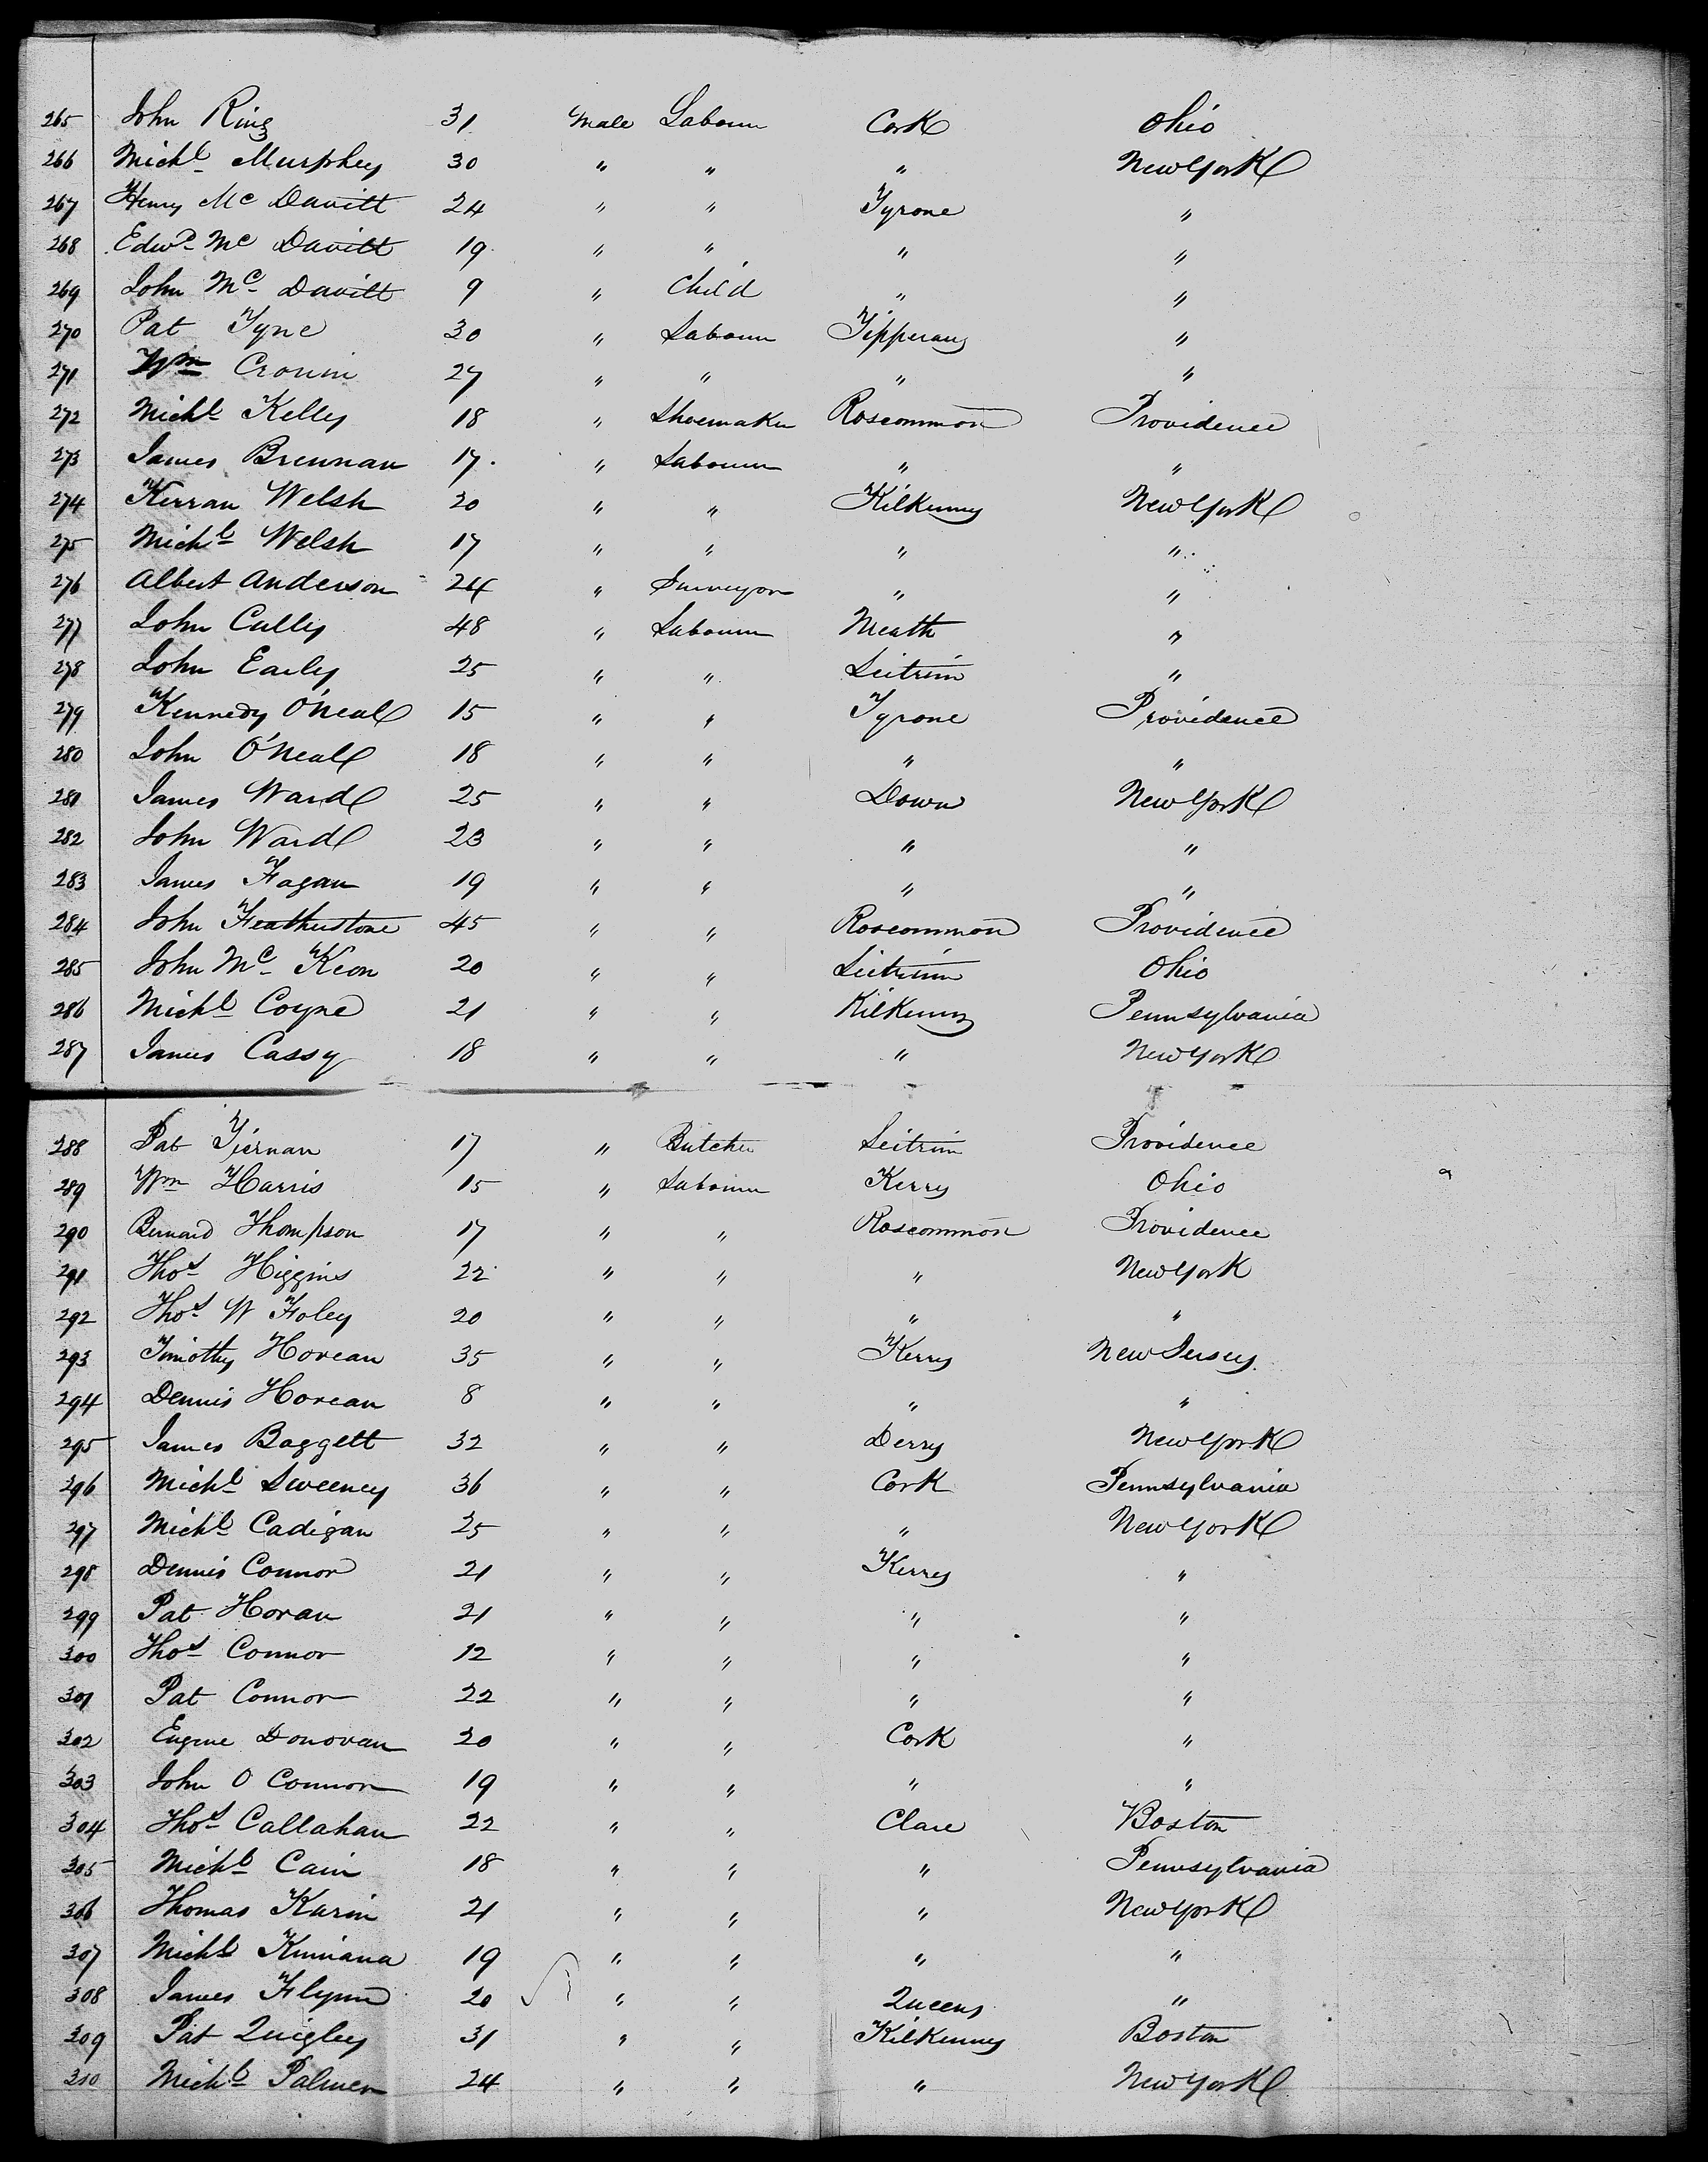 265 John Ring 31 Male Labourer Cork Ohio
266 Michl Murphey 30 " " " New York
267 Henry Mc Davitt 24 " " Tyrone "
268 Edwd Mc Davitt 19 " " " "
269 John Mc Davitt 9 " Child " "
270 Pat Tyne 30 " Labourer Tipperary "
271 Wm Cronin 27 " " " "
272 Michl Kelly 18 " Shoemaker Roscommon Providence
273 James Brennan 17 " Labourer " "
274 Kerran Welsh 20 " " Kilkenny New York
275 Michl Welsh 17 " " " "
276 Albert Anderson 24 " Surveyor " "
277 John Cully 48 " Labourer Meath "
278 John Early 25 " " Leitrim "
279 Kennedy O'Neal 15 " " Tyrone Providence
280 John O'Neal 18 " " " "
281 James Ward 25 " " Down New York
282 John Ward 23 " " " "
283 James Fagan 19 " " " "
284 John Featherstone 45 " " Roscommon Providence
285 John Mc Keon 20 " " Leitrim Ohio
286 Michl Coyne 21 " " Kilkenny Pennsylvania
287 James Cassy 18 " " " New York
288 Pat Tiernan 17 " Butcher Leitrim Providence
289 Wm Harris 15 " Labourer Kerry Ohio
290 Bernard Thompson 17 " " Roscommon Providence
291 Thos Higgins 22 " " " New York
292 Thos W Foley 20 " " " "
293 Timothy Horean 35 " " Kerry New Jersey
294 Dennis Horean 8 " " " "
295 James Baggett 32 " " Derry New York
296 Michl Sweeney 36 " " Cork Pennsylvania
297 Michl Cadigan 25 " " " New York
298 Dennis Connor 21 " " Kerry "
299 Pat Horan 21 " " " "
300 Thos Connor 12 " " " "
301 Pat Connor 22 " " " "
302 Eugene Donovan 20 " " Cork "
303 John O Connor 19 " " " "
304 Thos Callahan 22 " " Clare Boston
305 Michl Cain 18 " " " Pennsylvania
306 Thomas Karin 21 " " " New York
307 Michl 19 " " " "
308 James Flynn 20 " " Queens "
309 Pat Quigley 31 " " Kilkenny Boston
310 Michl Palmer 24 " " " New York